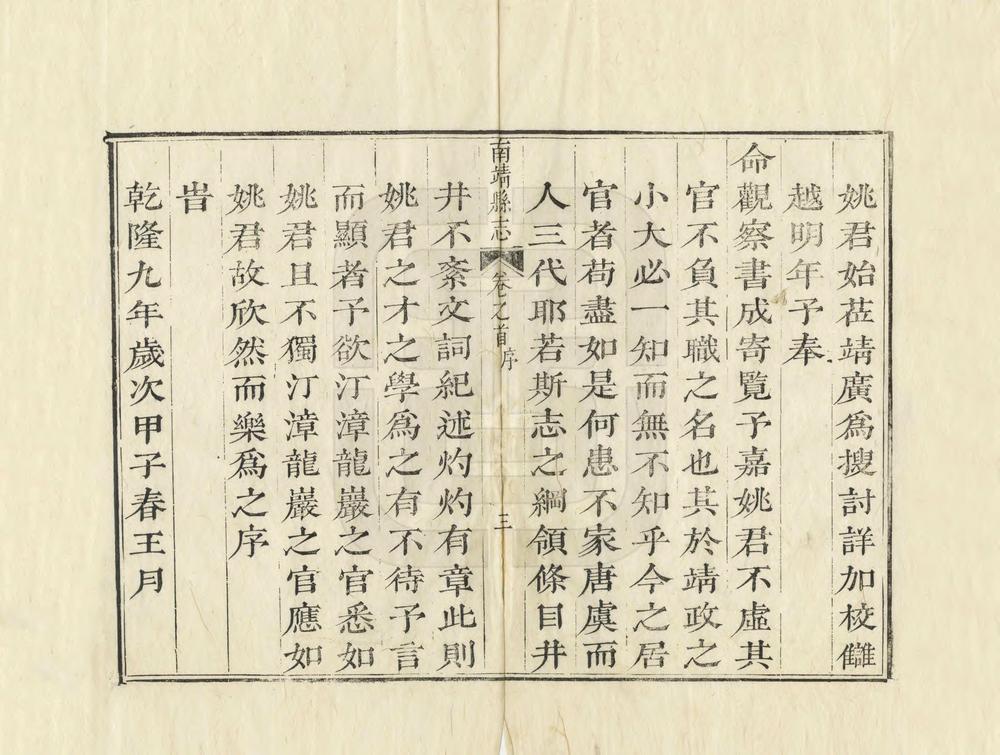 姚君始莅靖廣爲搜討詳加校讎
越明年予奉
命觀察書成寄覧予嘉姚君不虛其
官不負其職之名也其於靖政之
小大必一知而無不知乎今之居
官者苟盡如是何患不家唐虞而
人三代耶若斯志之綱領條目井
南靖縣志
卷之首
序
三
井不紊文詞紀述灼灼有章此則
姚君之才之學爲之有不待予言
而顯者予欲汀漳龍巖之官悉如
姚君且不獨汀漳龍巖之官應如
姚君故欣然而樂爲之序
旹
乾隆九年歲次甲子春王月